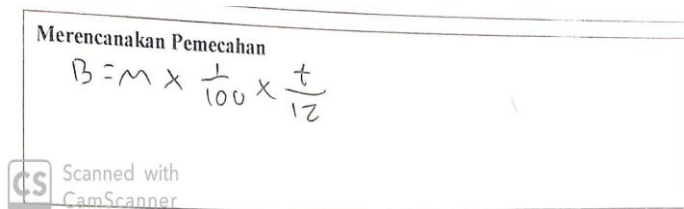 Merencanakan Pemecahan
B = M × 1/100 × t/12
CS Scanned with
CamScanner